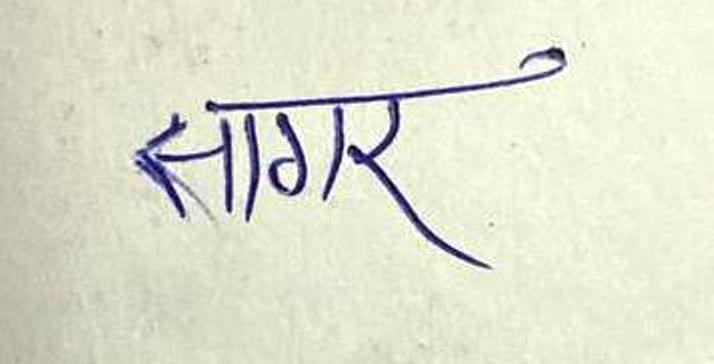 सागर